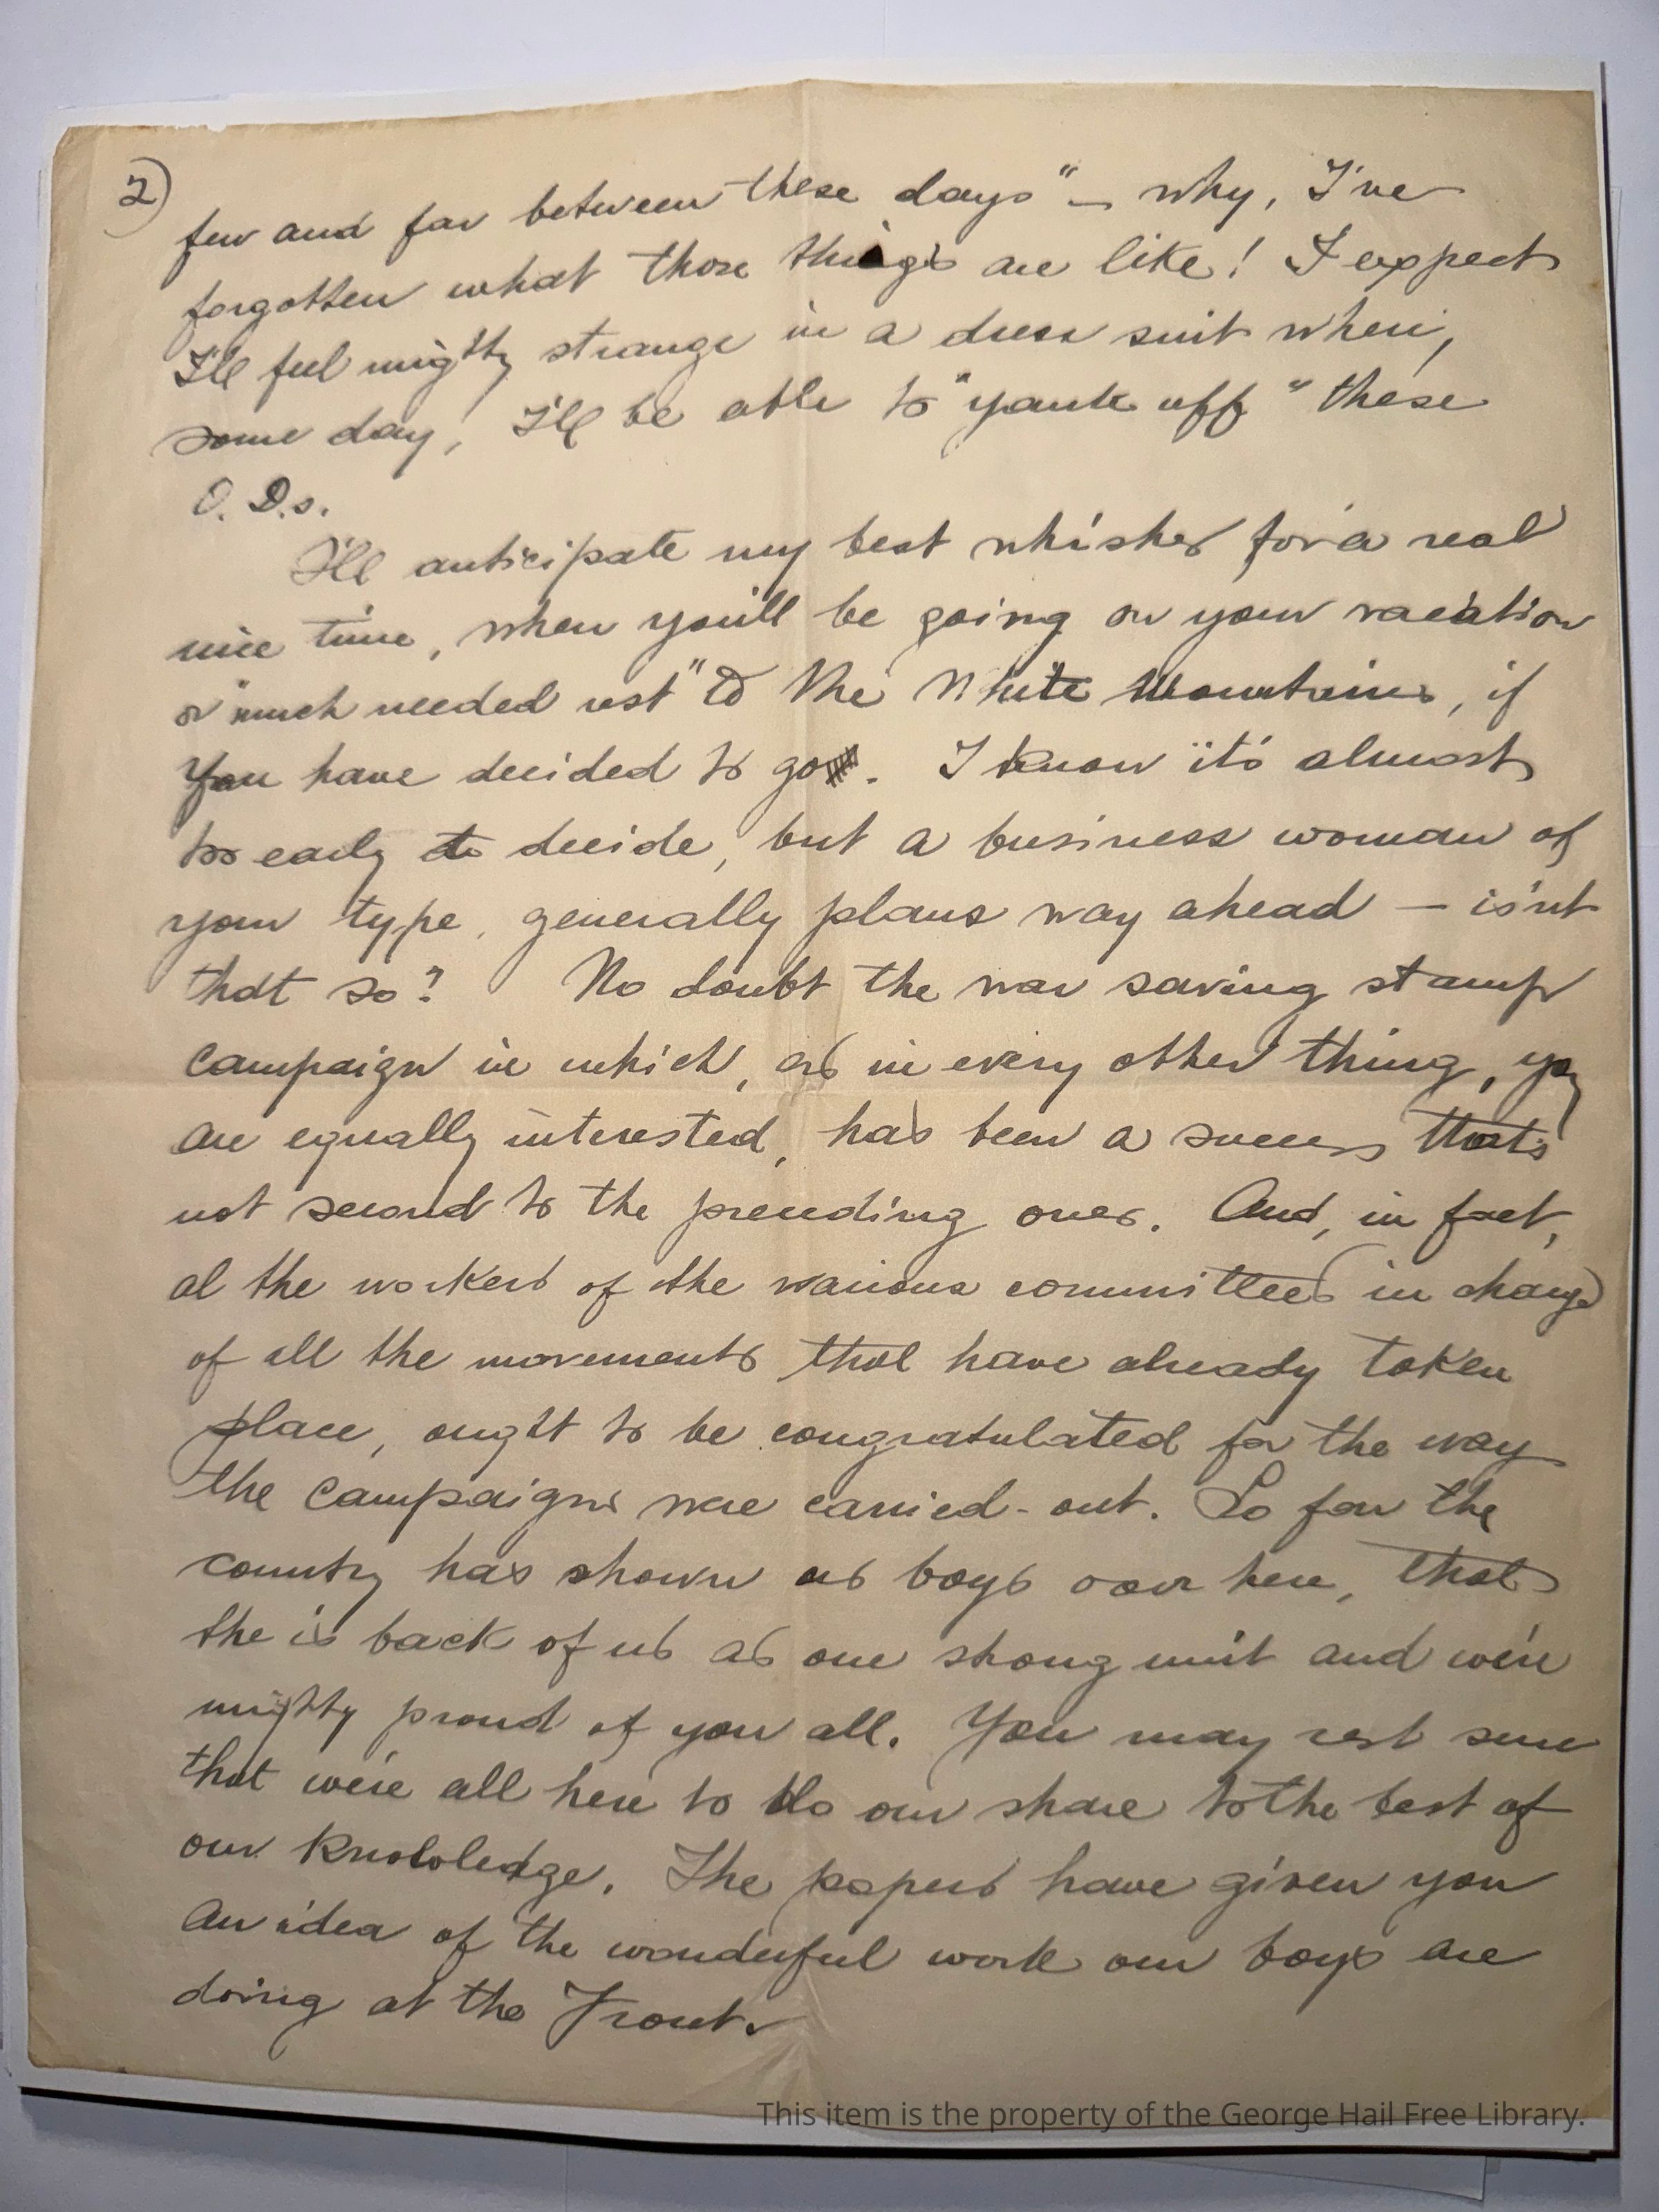 2)
few and far between these days" — why, I've
forgotten what those things are like! I expect
I'll feel mighty strange in a dress suit when,
some day, I'll be able to "yank off" these
O. D.s.
I'll anticipate my best whishes for a real
nice time, when you'll be going on your vacation
or "much needed rest" to the White Mountains, if
you have decided to go. I know it's almost
too early to decide, but a business woman of
your type, generally plans way ahead — is'nt
that so? No doubt the war saving stamp
campaign in which, as in every other thing, you
are equally interested, has been a success that's
not second to the preceding ones. And, in fact,
al the workers of the various committees in charge
of all the movements that have already taken
place, ought to be congratulated for the way
the campaigns were carried-out. So far the
country has shown us boys over here, that
she is back of us as one strong unit and we're
mighty proud of you all. You may rest sure
that we're all here to do our share to the best of
our knowledge. The papers have given you
an idea of the wonderful work our boys are
doing at the Front.
This item is the property of the George Hail Free Library.